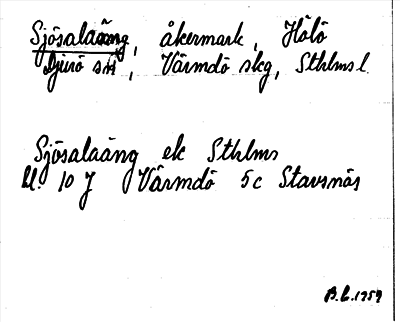 Sjösalaäng, åkermark, Hölö
Djurö sn, Värmdö skg, Sthlms l.
Sjösalaäng ek Sthlms
bl. 10 J Värmdö 5c Stavsnäs
B.L. 1959